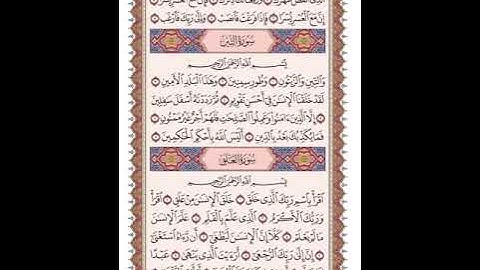 إِنَّ مَعَ ٱلْعُسْرِ يُسْرًا ۝ فَإِذَا فَرَغْتَ فَٱنصَبْ ۝ وَإِلَىٰ رَبِّكَ فَٱرْغَب ۝
سُورَةُ التِّينِ
بِسْمِ ٱللَّهِ ٱلرَّحْمَٰنِ ٱلرَّحِيمِ
وَٱلتِّينِ وَٱلزَّيْتُونِ ۝ وَطُورِ سِينِينَ ۝ وَهَٰذَا ٱلْبَلَدِ ٱلْأَمِينِ ۝
لَقَدْ خَلَقْنَا ٱلْإِنسَٰنَ فِىٓ أَحْسَنِ تَقْوِيمٍ ۝ ثُمَّ رَدَدْنَٰهُ أَسْفَلَ سَٰفِلِينَ ۝
إِلَّا ٱلَّذِينَ ءَامَنُوا۟ وَعَمِلُوا۟ ٱلصَّٰلِحَٰتِ فَلَهُمْ أَجْرٌ غَيْرُ مَمْنُونٍ ۝
فَمَا يُكَذِّبُكَ بَعْدُ بِٱلدِّينِ ۝ أَلَيْسَ ٱللَّهُ بِأَحْكَمِ ٱلْحَٰكِمِينَ ۝
سُورَةُ العَلَقِ
بِسْمِ ٱللَّهِ ٱلرَّحْمَٰنِ ٱلرَّحِيمِ
ٱقْرَأْ بِٱسْمِ رَبِّكَ ٱلَّذِى خَلَقَ ۝ خَلَقَ ٱلْإِنسَٰنَ مِنْ عَلَقٍ ۝ ٱقْرَأْ
وَرَبُّكَ ٱلْأَكْرَمُ ۝ ٱلَّذِى عَلَّمَ بِٱلْقَلَمِ ۝ عَلَّمَ ٱلْإِنسَٰنَ
مَا لَمْ يَعْلَمْ ۝ كَلَّآ إِنَّ ٱلْإِنسَٰنَ لَيَطْغَىٰٓ ۝ أَن رَّءَاهُ ٱسْتَغْنَىٰٓ ۝
إِنَّ إِلَىٰ رَبِّكَ ٱلرُّجْعَىٰٓ ۝ أَرَءَيْتَ ٱلَّذِى يَنْهَىٰ ۝ عَبْدًا